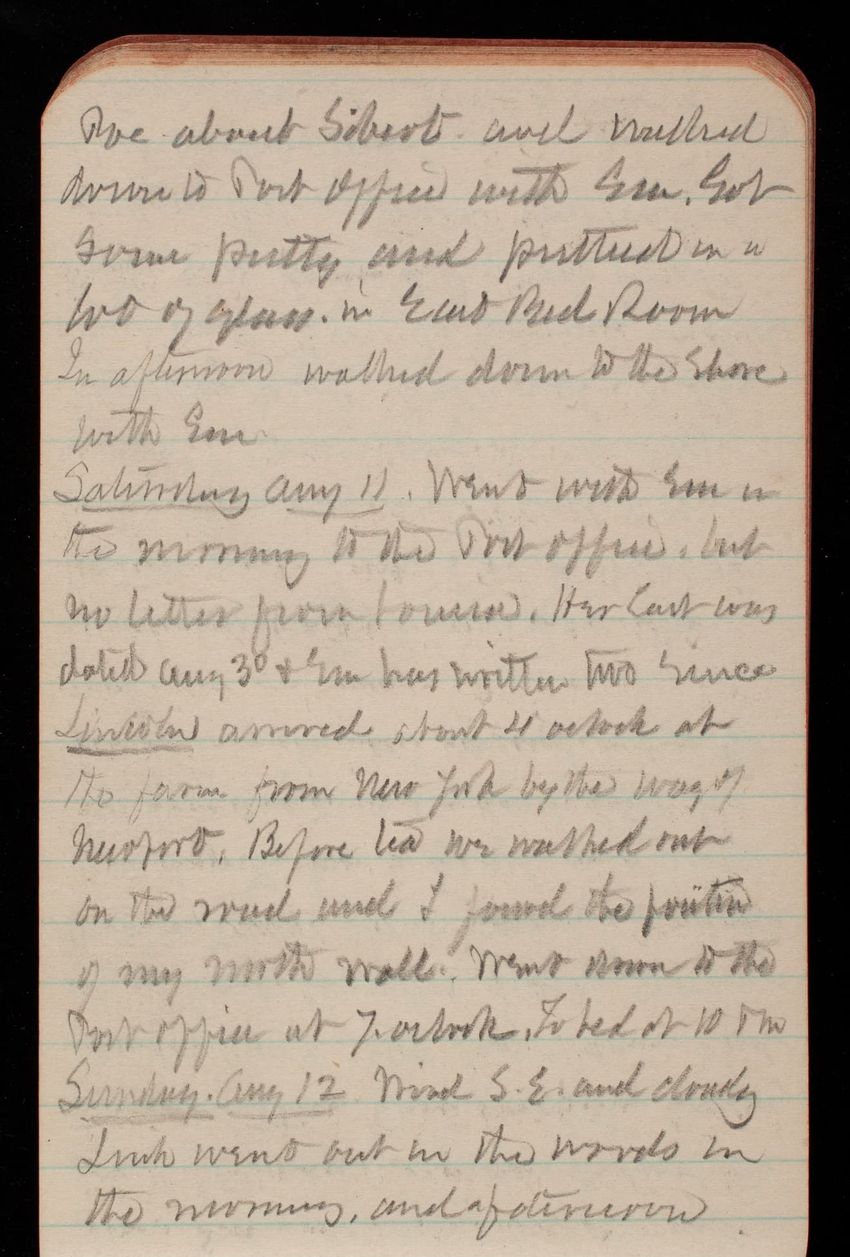 about Sibert and walked
down to Post Office with Em. Got
some putty and puttied in a
lot of glass. in East Bed Room
In afternoon walked down to the Shore
with Em
Saturday Aug 11. Went with Em in
the morning to the Post office, but
no letter from Louise. Her last was
dated Aug 3d & Em has written two since
Lincoln arrived about 4 oclock at
the farm from New York by the way of
Newport. Before tea we walked out
on the road and I found the
of my north wall. Went down to the
Post office at 7 oclock. To bed at 10 PM
Sunday. Aug 12 Wind S.E. and cloudy
Link went out in the woods in
the morning, and afternoon